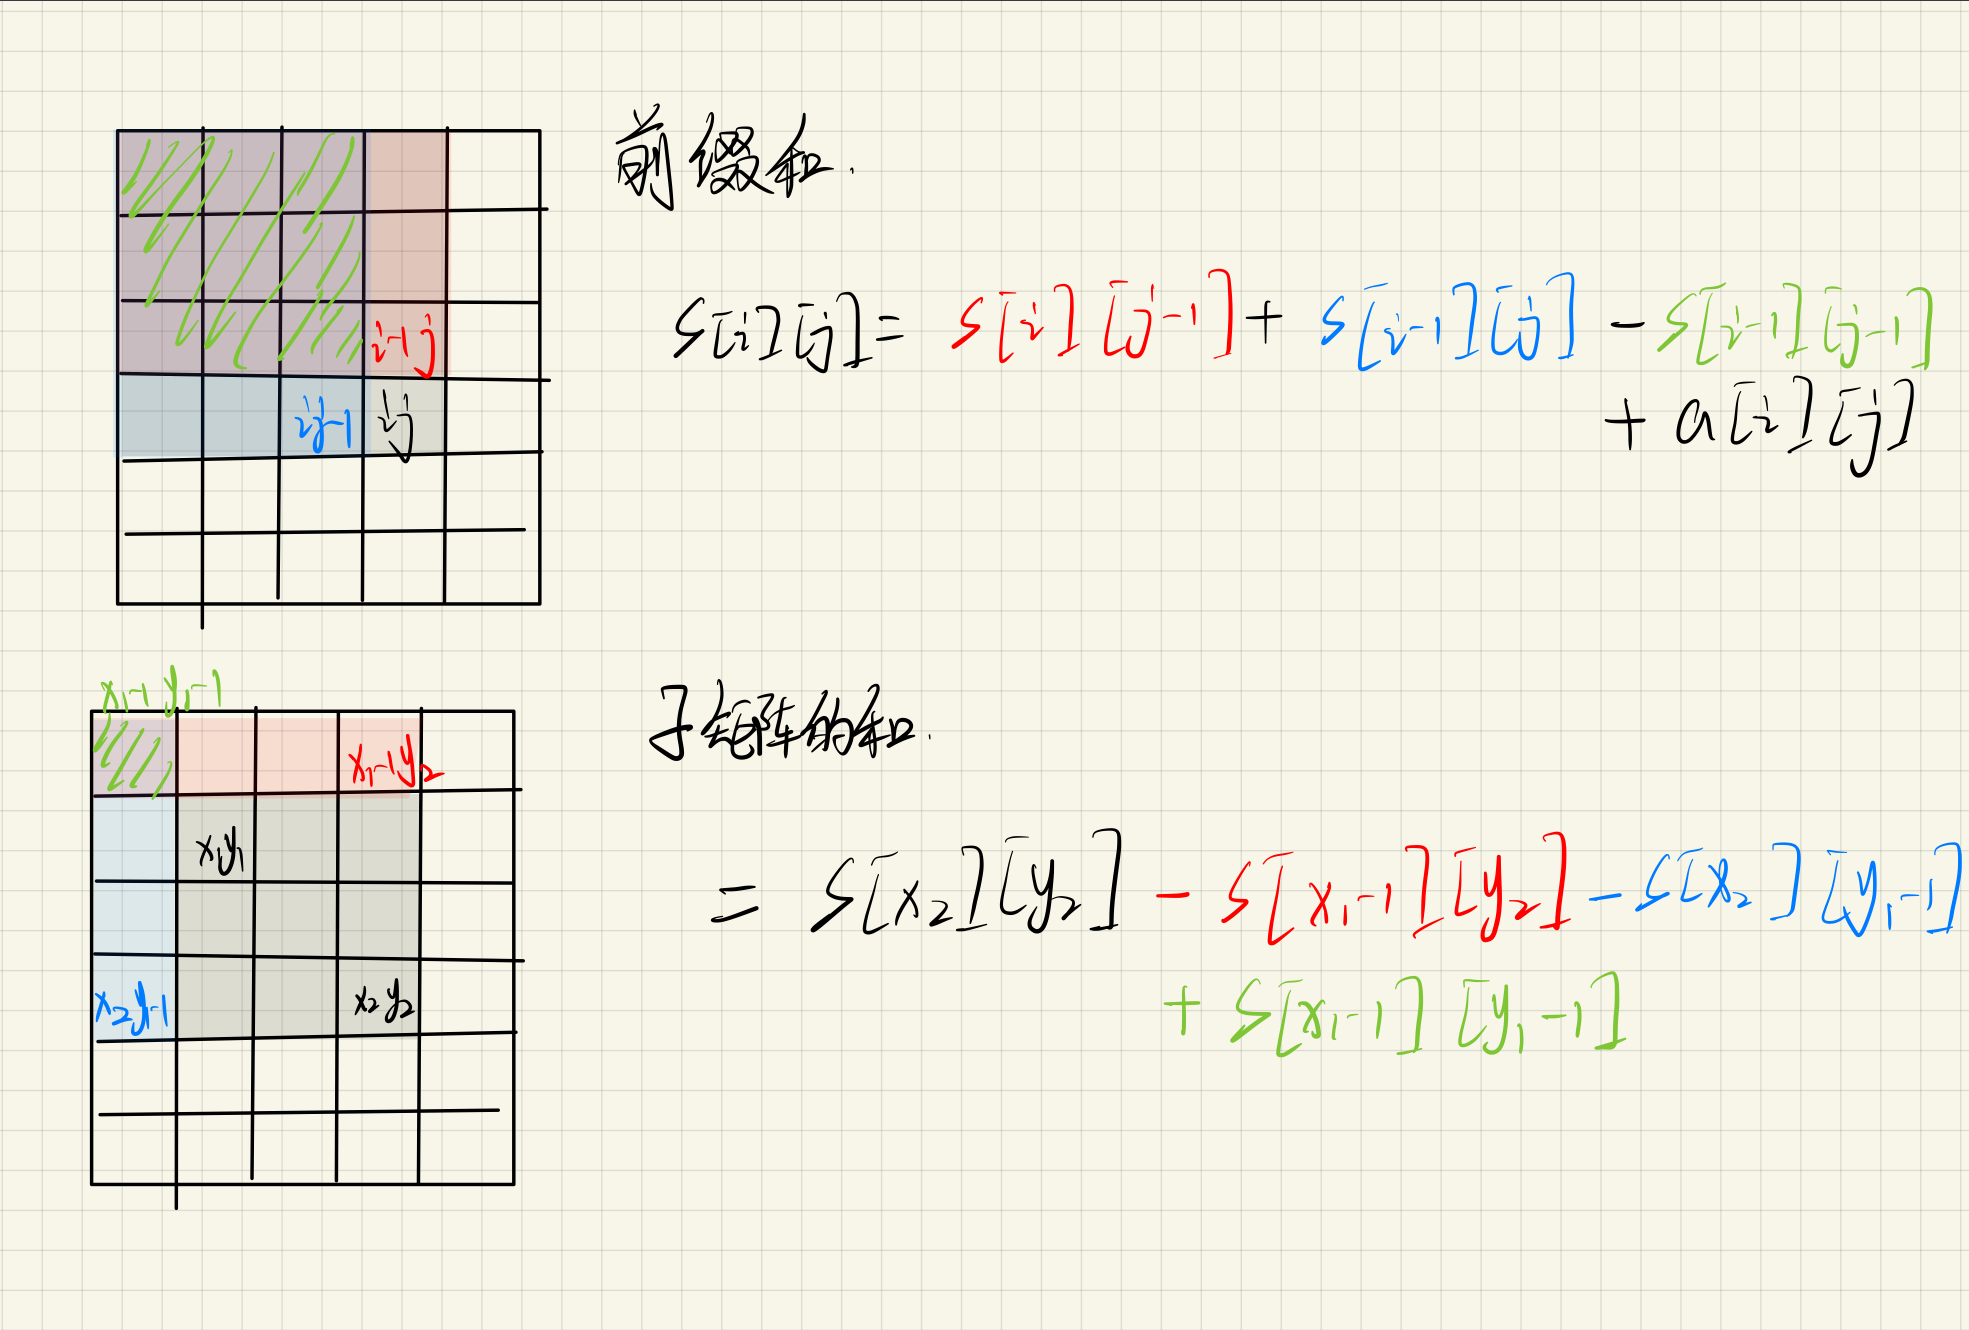 前缀和.
i-1 j
i j-1 ij
s[i][j]= s[i][j-1]+ s[i-1][j] - s[i-1][j-1]
+ a[i][j]
x₁-1 y₁-1
x₁-1 y₂
x₁y₁
x₂y₁-1 x₂y₂
子矩阵的和.
= s[x₂][y₂] - s[x₁-1][y₂] - s[x₂][y₁-1]
+ s[x₁-1][y₁-1]